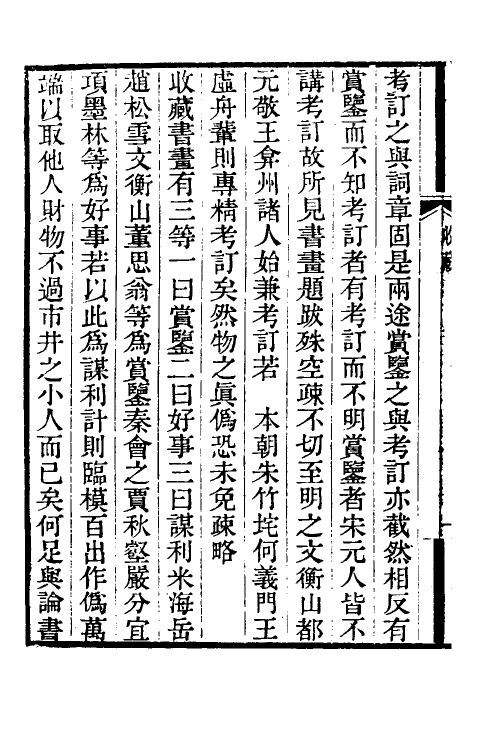 考訂之與詞章固是兩途賞鑒之與考訂亦截然相反有
賞鑒而不知考訂者有考訂而不明賞鑒者宋元人皆不
講考訂故所見書畫題跋殊空疎不切至明之文衡山都
元敬王弇州諸人始兼考訂若　本朝朱竹垞何義門王
虛舟輩則專精考訂矣然物之眞僞恐未免疎略
收藏書畫有三等一曰賞鑒二曰好事三曰謀利米海岳
趙松雪文衡山董思翁等爲賞鑒秦會之賈秋壑嚴分宜
項墨林等爲好事若以此爲謀利計則臨模百出作僞萬
端以取他人財物不過市井之小人而已矣何足與論書